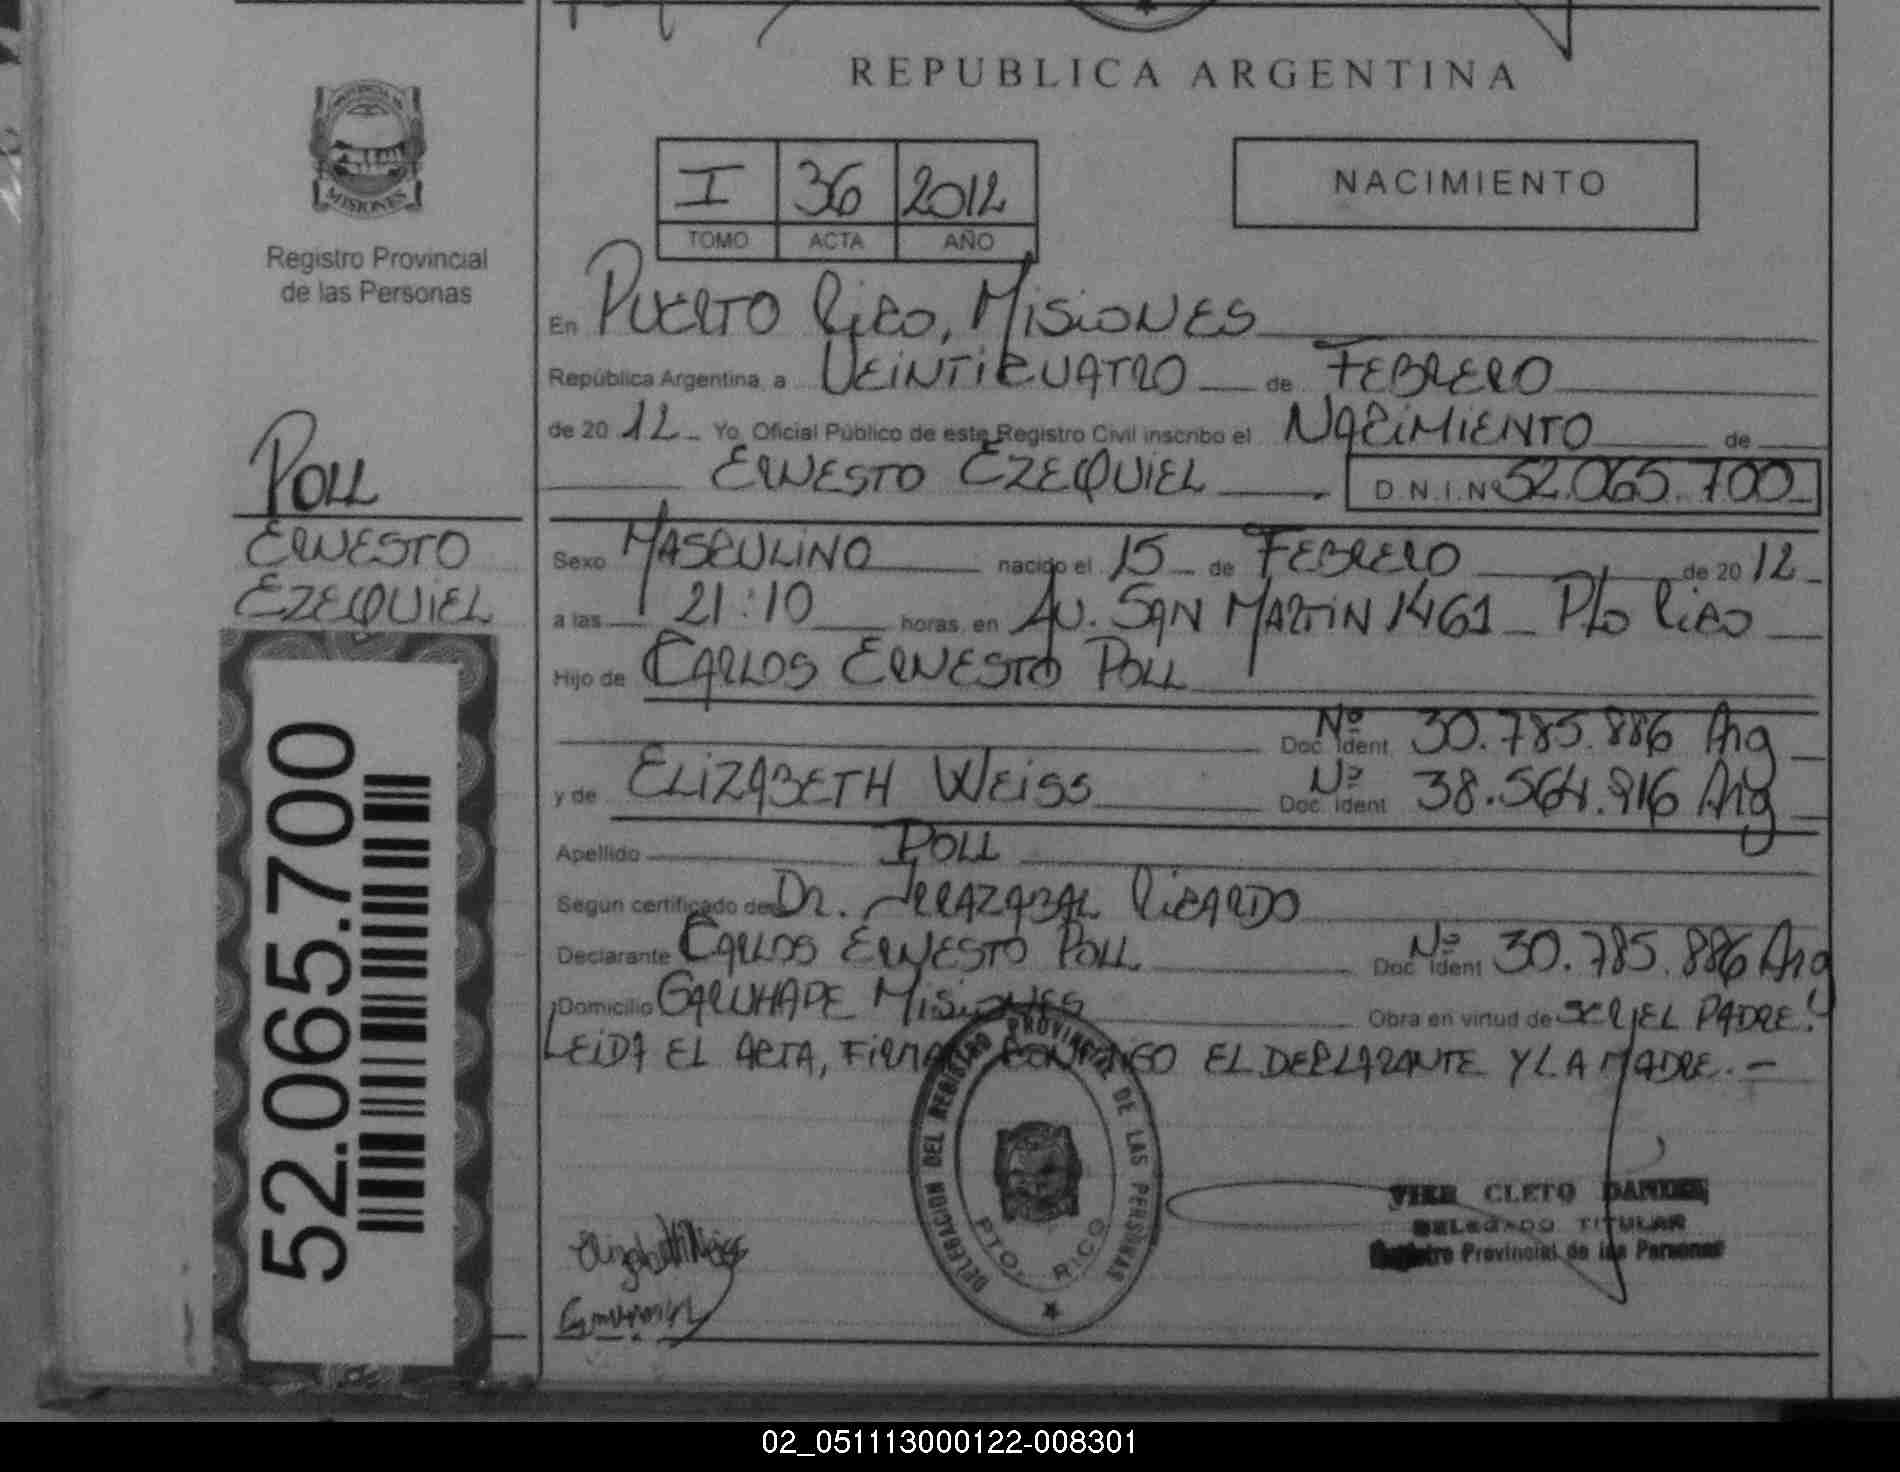 REPUBLICA ARGENTINA
PROVINCIA DE
MISIONES
Registro Provincial
de las Personas
I 36 2012
TOMO ACTA AÑO
NACIMIENTO
En PUERTO RICO, MISIONES
República Argentina, a VEINTICUATRO de FEBRERO
de 20 12 Yo, Oficial Público de este Registro Civil inscribo el NACIMIENTO de
ERNESTO EZEQUIEL D.N.I.Nº 52.065.700
POLL
ERNESTO
EZEQUIEL
52.065.700
Sexo MASCULINO nacido el 15 de FEBRERO de 20 12
a las 21:10 horas, en AV. SAN MARTIN 1461 Pto RICO
Hijo de CARLOS ERNESTO POLL
Doc. Ident. Nº 30.785.886 Arg
y de ELIZABETH WEISS Doc. Ident. Nº 38.564.916 Arg
Apellido POLL
Según certificado de DR. IRRAZABAL RICARDO
Declarante CARLOS ERNESTO POLL Doc. Ident Nº 30.785.886 Arg
Domicilio GARUHAPE MISIONES Obra en virtud de SER EL PADRE.
LEIDA EL ACTA, FIRMAN CONMIGO EL DECLARANTE Y LA MADRE.-
DELEGACION DEL REGISTRO PROVINCIAL DE LAS PERSONAS
PTO. RICO
Elizabeth Weiss
CLETO
DELEGADO TITULAR
Registro Provincial de las Personas
02_051113000122-008301